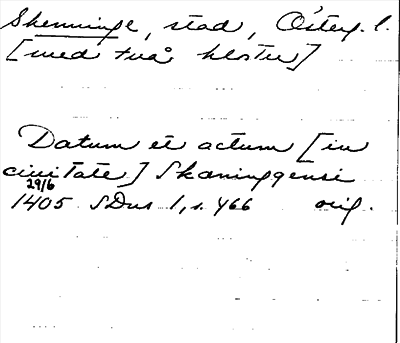 Skenninge, stad, Österg. l.
[med två kloster]
Datum et actum [in
ciuitate] Skaninggensi
29/6
1405 SDns 1, s. 466 orig.